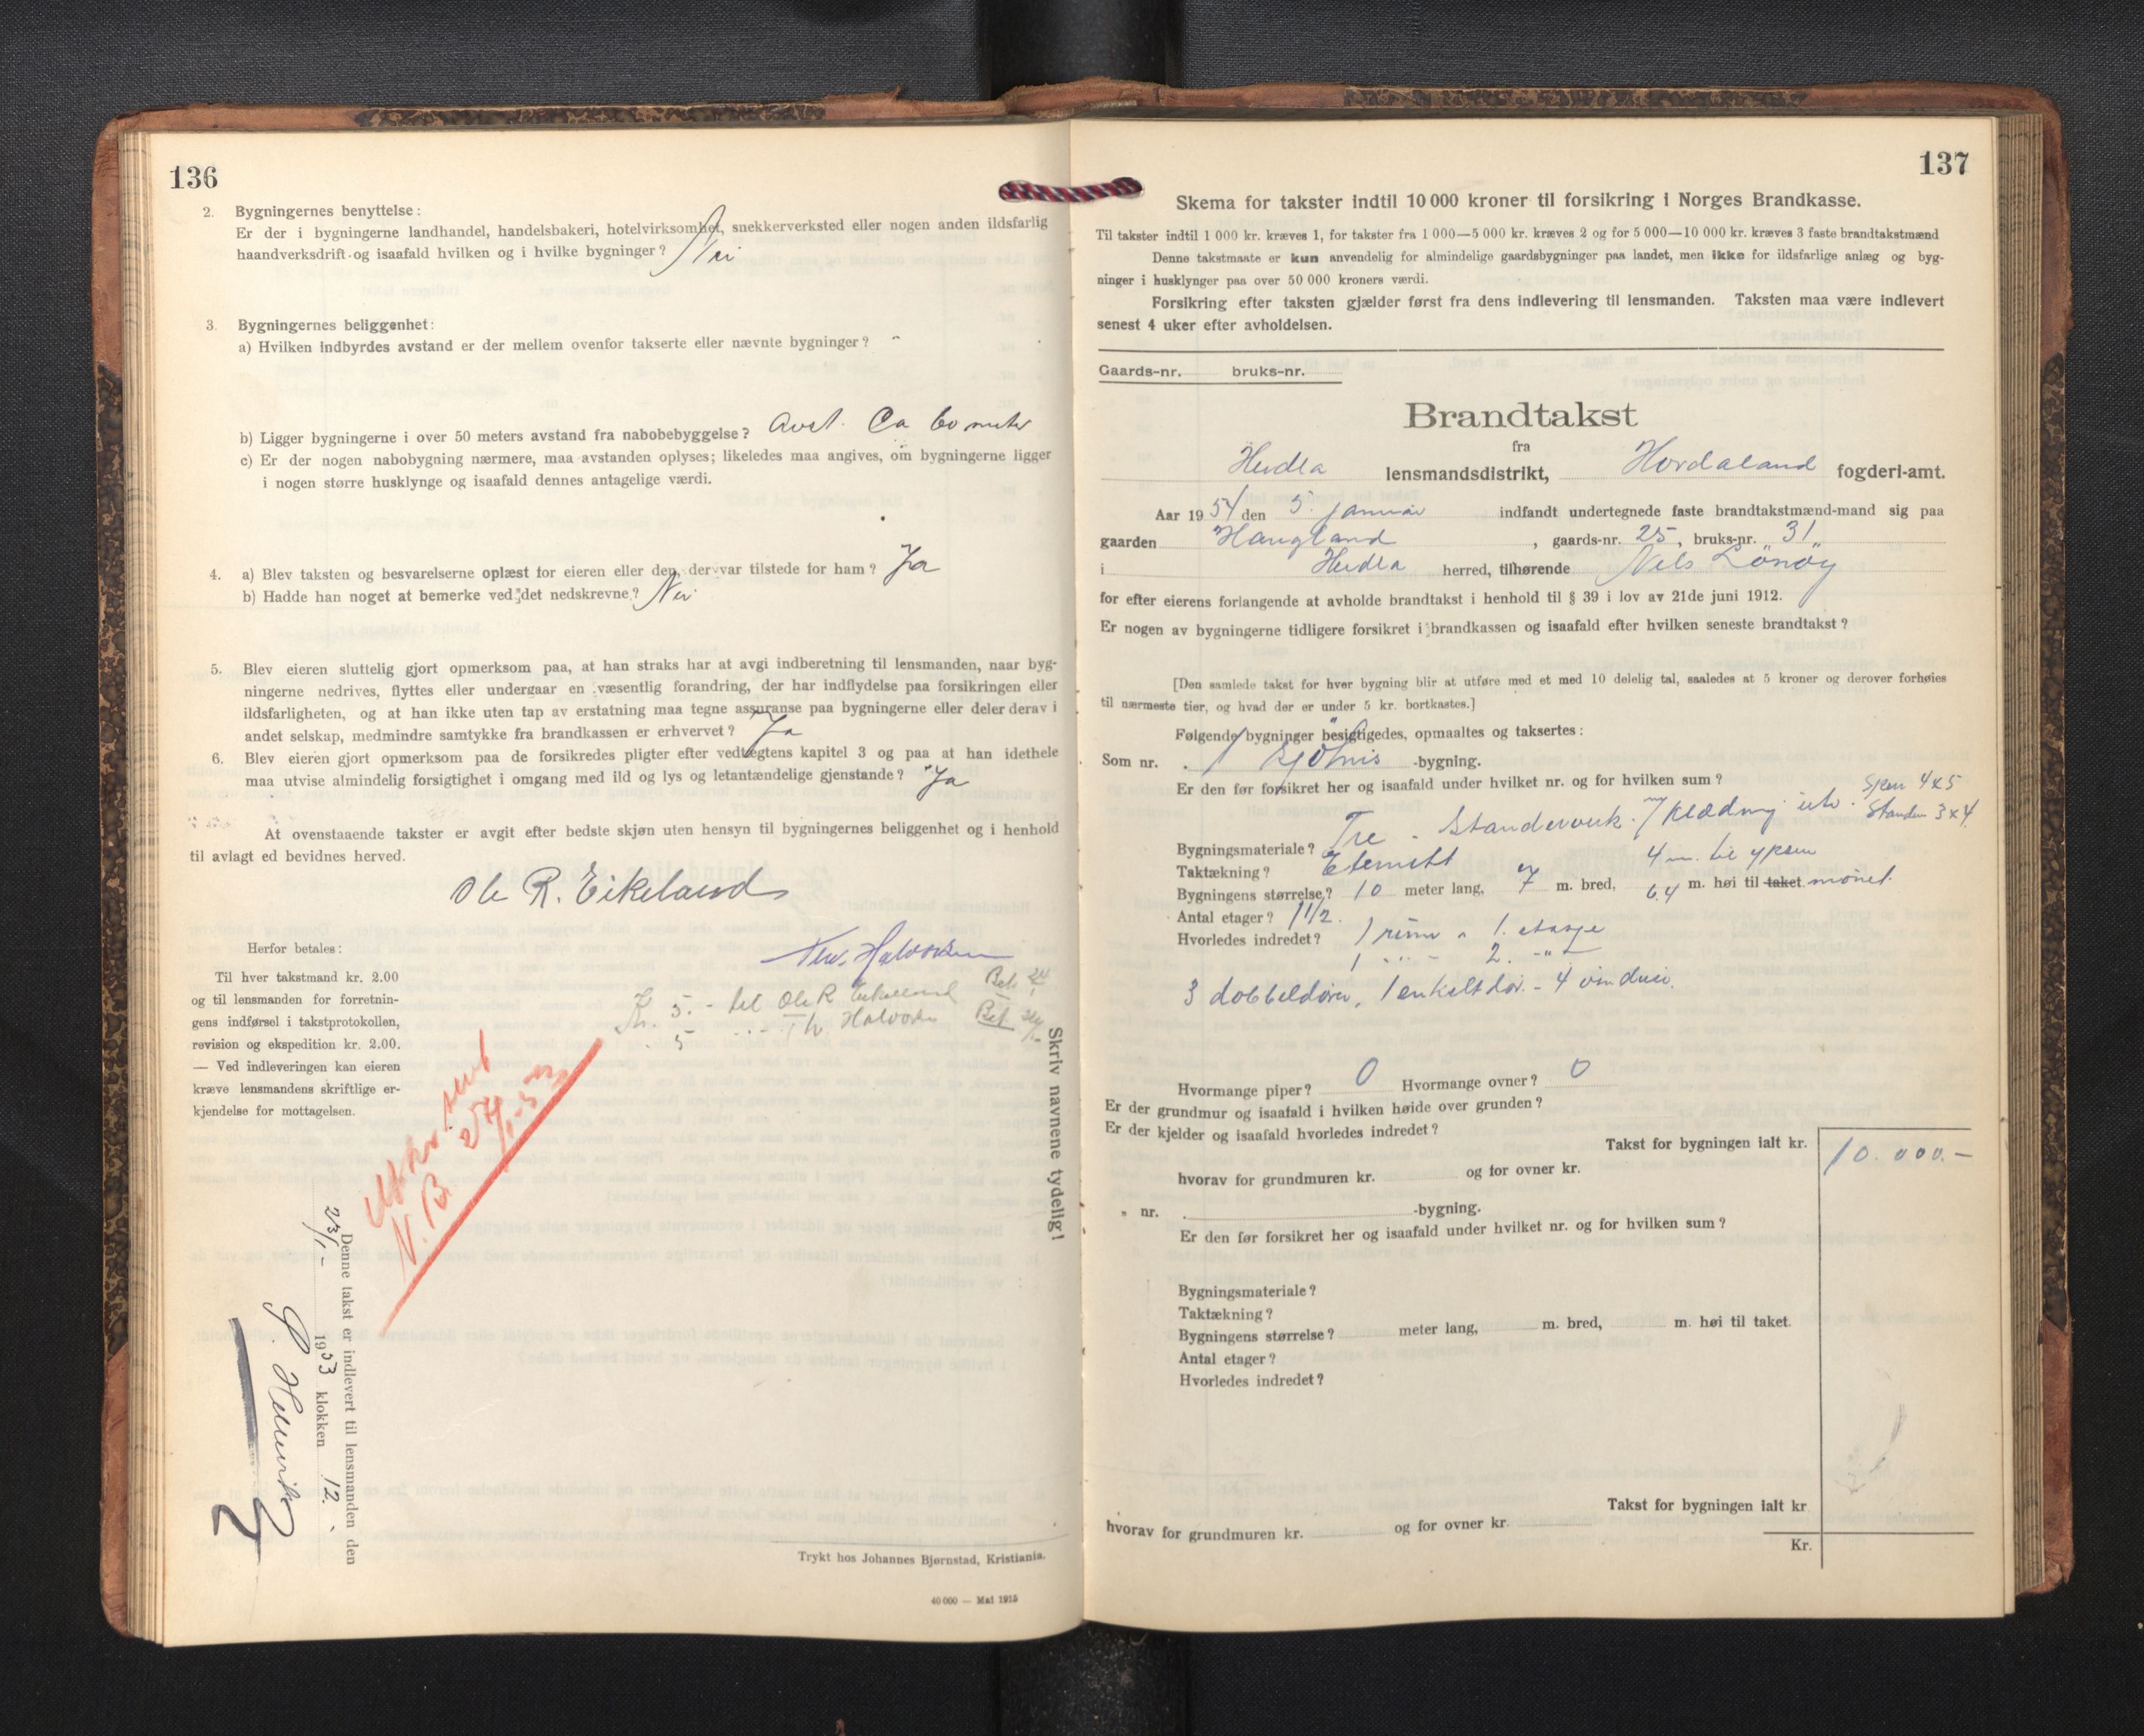 136
2. Bygningernes benyttelse:
Er der i bygningerne landhandel, handelsbakeri, hotelvirksomhet, snekkerverksted eller nogen anden ildsfarlig
haandverksdrift og isaafald hvilken og i hvilke bygninger? Nei
3. Bygningernes beliggenhet:
a) Hvilken indbyrdes avstand er der mellem ovenfor takserte eller nævnte bygninger? -
b) Ligger bygningerne i over 50 meters avstand fra nabobebyggelse? Avst. Ca 60 meter
c) Er der nogen nabobygning nærmere, maa avstanden oplyses; likeledes maa angives, om bygningerne ligger
i nogen større husklynge og isaafald dennes antagelige værdi.
4. a) Blev taksten og besvarelserne oplæst for eieren eller den, der var tilstede for ham? Ja
b) Hadde han noget at bemerke ved det nedskrevne? Nei
5. Blev eieren sluttelig gjort opmerksom paa, at han straks har at avgi indberetning til lensmanden, naar byg-
ningerne nedrives, flyttes eller undergaar en væsentlig forandring, der har indflydelse paa forsikringen eller
ildsfarligheten, og at han ikke uten tap av erstatning maa tegne assuranse paa bygningerne eller deler derav i
andet selskap, medmindre samtykke fra brandkassen er erhvervet? Ja
6. Blev eieren gjort opmerksom paa de forsikredes pligter efter vedtægtens kapitel 3 og paa at han idethele
maa utvise almindelig forsigtighet i omgang med ild og lys og letantændelige gjenstande? Ja
At ovenstaaende takster er avgit efter bedste skjøn uten hensyn til bygningernes beliggenhet og i henhold
til avlagt ed bevidnes herved.
Ole R. Eikeland
Halvorsen
Herfor betales:
Til hver takstmand kr. 2.00
og til lensmanden for forretnin-
gens indførsel i takstprotokollen,
revision og ekspedition kr. 2.00.
— Ved indleveringen kan eieren
kræve lensmandens skriftlige er-
kjendelse for mottagelsen.
Kr. 5.- til Ole R Eikeland Bet
5 - Th Halvorsen Bet
Skriv navnene tydelig!
N.B.
Denne takst er indlevert til lensmanden den
23/1- 1953 klokken 12.
Trykt hos Johannes Bjørnstad, Kristiania.
40 000 — Mai 1915
137
Skema for takster indtil 10 000 kroner til forsikring i Norges Brandkasse.
Til takster indtil 1 000 kr. kræves 1, for takster fra 1 000—5 000 kr. kræves 2 og for 5 000—10 000 kr. kræves 3 faste brandtakstmænd
Denne takstmaate er kun anvendelig for almindelige gaardsbygninger paa landet, men ikke for ildsfarlige anlæg og byg-
ninger i husklynger paa over 50 000 kroners værdi.
Forsikring efter taksten gjælder først fra dens indlevering til lensmanden. Taksten maa være indlevert
senest 4 uker efter avholdelsen.
Gaards-nr. bruks-nr.
Brandtakst
fra
Herdla lensmandsdistrikt, Hordaland fogderi-amt.
Aar 1954 den 5. januar indfandt undertegnede faste brandtakstmænd-mand sig paa
gaarden Haugland, gaards-nr. 25, bruks-nr. 31
i Herdla herred, tilhørende Nils Lönöy
for efter eierens forlangende at avholde brandtakst i henhold til § 39 i lov av 21de juni 1912.
Er nogen av bygningerne tidligere forsikret i brandkassen og isaafald efter hvilken seneste brandtakst?
[Den samlede takst for hver bygning blir at utføre med et med 10 delelig tal, saaledes at 5 kroner og derover forhøies
til nærmeste tier, og hvad der er under 5 kr. bortkastes.]
Følgende bygninger besigtigedes, opmaaltes og taksertes:
Som nr. 1 Sjöhus -bygning.
Er den før forsikret her og isaafald under hvilket nr. og for hvilken sum?
Sperr 4x5
Stander 3x4
Bygningsmateriale? Tre - Standerverk. klædning utv.
Taktækning? Eternitt 4 m. til yksen
Bygningens størrelse? 10 meter lang, 7 m. bred, 6.4 m. høi til taket mönet.
Antal etager? 1 1/2.
Hvorledes indredet? 1 rum i 1. etasje
1 " - 2. - " -
3 dobbeldører, 1 enkelt dør. - 4 vinduer.
Hvormange piper? 0 Hvormange ovner? 0
Er der grundmur og isaafald i hvilken høide over grunden?
Er der kjelder og isaafald hvorledes indredet?
Takst for bygningen ialt kr. 10.000.-
hvorav for grundmuren kr. og for ovner kr.
" nr. -bygning.
Er den før forsikret her og isaafald under hvilket nr. og for hvilken sum?
Bygningsmateriale?
Taktækning?
Bygningens størrelse? meter lang, m. bred, m. høi til taket.
Antal etager?
Hvorledes indredet?
Takst for bygningen ialt kr
hvorav for grundmuren kr. og for ovner kr.
Kr.